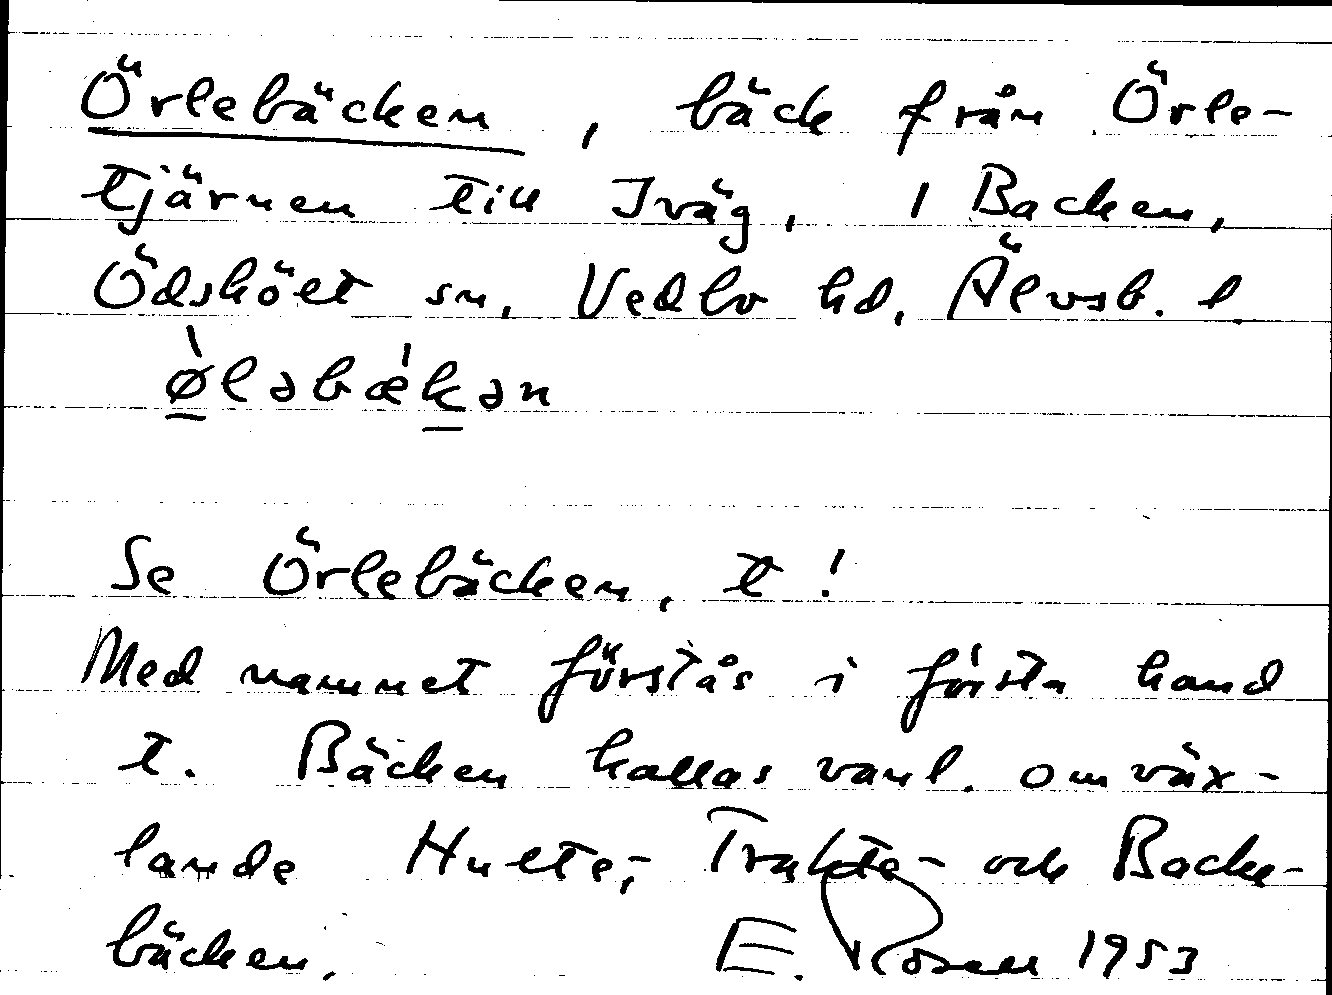 Örlebäcken, bäck från Örle-
tjärnen till Iväg, 1 Backen,
Ödskölt sn, Vedbo hd, Älvsb. l.
ø̀ləbǽkən
Se Örlebäcken, t!
Med namnet förstås i första hand
t. Bäcken kallas vanl. omväx-
lande Hulte-, Trukte- och Backe-
bäcken. E. Rosell 1953